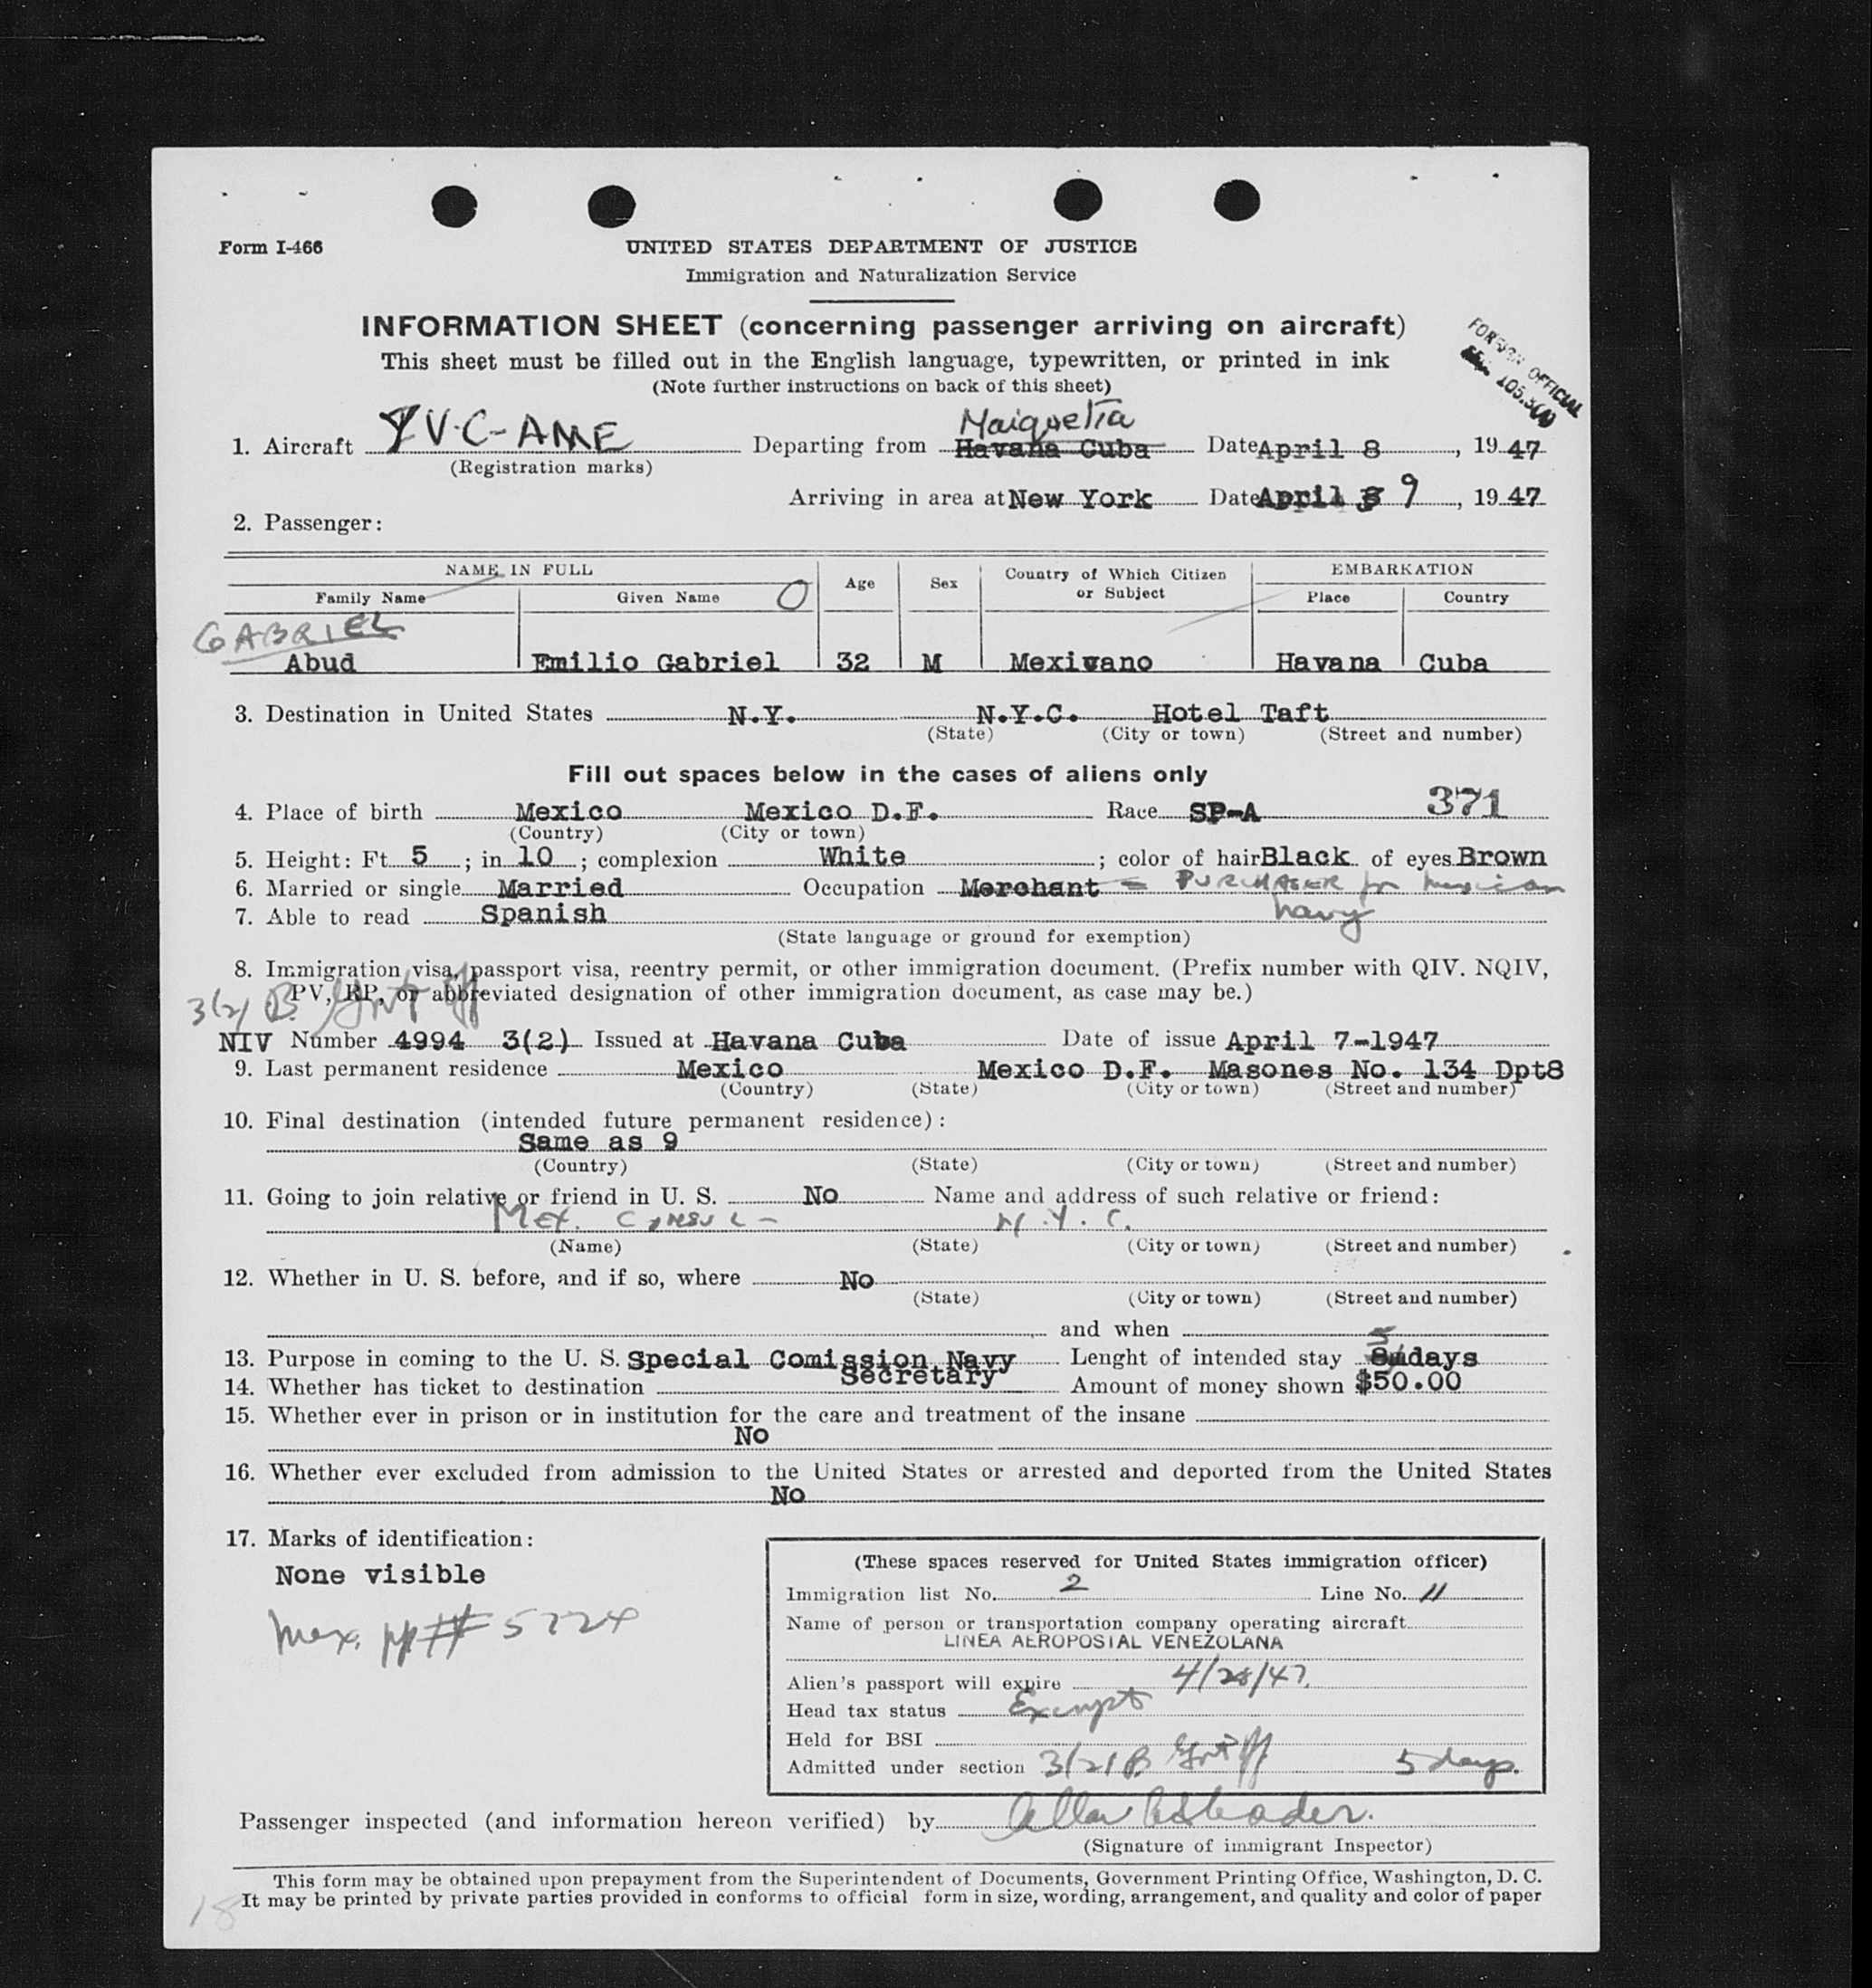 Form I-466
UNITED STATES DEPARTMENT OF JUSTICE
Immigration and Naturalization Service
INFORMATION SHEET (concerning passenger arriving on aircraft)
This sheet must be filled out in the English language, typewritten, or printed in ink
(Note further instructions on back of this sheet)
FOREIGN OFFICIAL
Maiquetia
1. Aircraft YV-C-AME Departing from Havana Cuba Date April 8, 19 47
(Registration marks)
Arriving in area at New York Date April 9, 19 47
2. Passenger:
NAME IN FULL Age Sex Country of Which Citizen or Subject EMBARKATION
Family Name Given Name Place Country
GABRIEL
Abud Emilio Gabriel 32 M Mexivano Havana Cuba
3. Destination in United States N.Y. N.Y.C. Hotel Taft
(State) (City or town) (Street and number)
Fill out spaces below in the cases of aliens only
371
4. Place of birth Mexico Mexico D.F. Race SP-A
(Country) (City or town)
5. Height: Ft. 5; in 10; complexion White; color of hair Black of eyes Brown
6. Married or single Married Occupation Merchant = PURCHASER for Mexican
navy
7. Able to read Spanish
(State language or ground for exemption)
8. Immigration visa, passport visa, reentry permit, or other immigration document. (Prefix number with QIV. NQIV,
PV, RP, or abbreviated designation of other immigration document, as case may be.)
3(2) B. Gvt Off
NIV Number 4994 3(2) Issued at Havana Cuba Date of issue April 7-1947
9. Last permanent residence Mexico Mexico D.F. Masones No. 134 Dpt8
(Country) (State) (City or town) (Street and number)
10. Final destination (intended future permanent residence):
Same as 9
(Country) (State) (City or town) (Street and number)
11. Going to join relative or friend in U. S. No Name and address of such relative or friend:
Mex. CONSUL - N.Y.C.
(Name) (State) (City or town) (Street and number)
12. Whether in U. S. before, and if so, where No
(State) (City or town) (Street and number)
and when
13. Purpose in coming to the U. S. Special Comission Navy Lenght of intended stay 5 days
Secretary
14. Whether has ticket to destination Amount of money shown $50.00
15. Whether ever in prison or in institution for the care and treatment of the insane
No
16. Whether ever excluded from admission to the United States or arrested and deported from the United States
No
17. Marks of identification:
None visible
Mex. pp # 5224
(These spaces reserved for United States immigration officer)
Immigration list No. 2 Line No. 11
Name of person or transportation company operating aircraft
LINEA AEROPOSTAL VENEZOLANA
Alien's passport will expire 4/28/47.
Head tax status Exempt
Held for BSI
Admitted under section 3/2/B Gvt Off 5 days.
Passenger inspected (and information hereon verified) by
(Signature of immigrant Inspector)
This form may be obtained upon prepayment from the Superintendent of Documents, Government Printing Office, Washington, D. C.
It may be printed by private parties provided in conforms to official form in size, wording, arrangement, and quality and color of paper
18